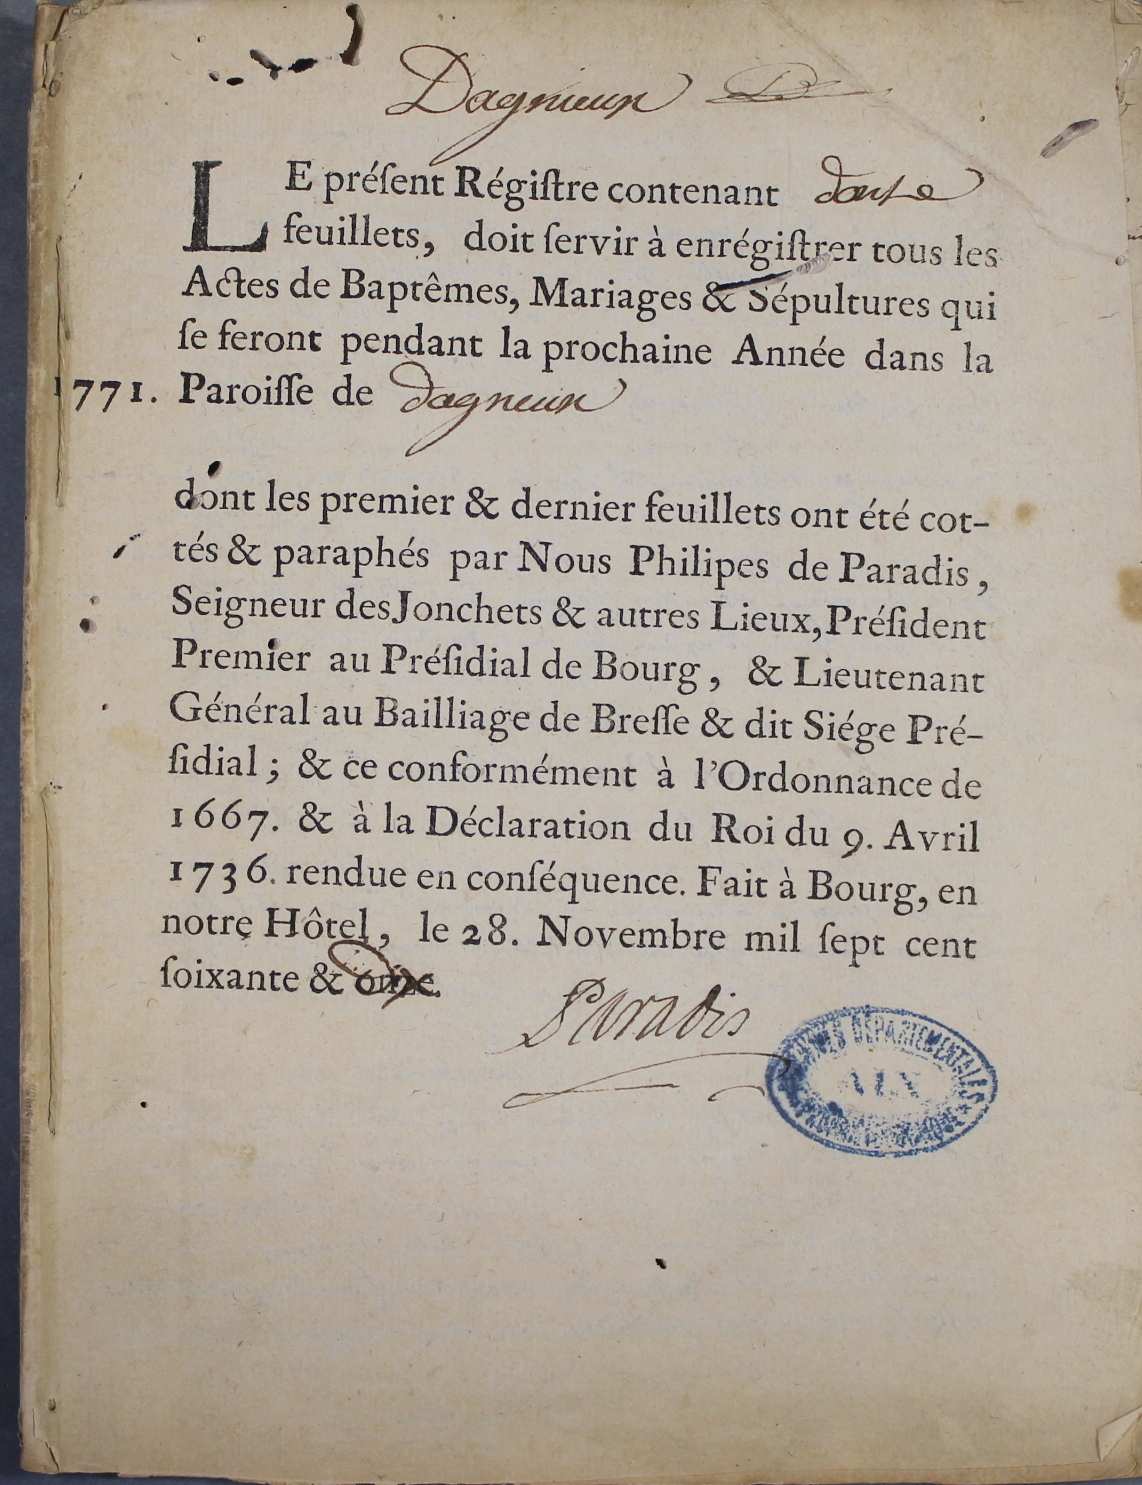 Dagnieux
LE préſent Régiſtre contenant douze
feuillets, doit ſervir à enrégiſtrer tous les
Actes de Baptêmes, Mariages & Sépultures qui
ſe feront pendant la prochaine Année dans la
1771. Paroiſſe de dagneux
dont les premier & dernier feuillets ont été cot-
tés & paraphés par Nous Philipes de Paradis,
Seigneur des Jonchets & autres Lieux, Préſident
Premier au Préſidial de Bourg, & Lieutenant
Général au Bailliage de Breſſe & dit Siége Pré-
ſidial; & ce conformément à l'Ordonnance de
1667. & à la Déclaration du Roi du 9. Avril
1736. rendue en conſéquence. Fait à Bourg, en
notre Hôtel, le 28. Novembre mil ſept cent
ſoixante & onze.
Paradis
ARCHIVES DÉPARTEMENTALES
AIN